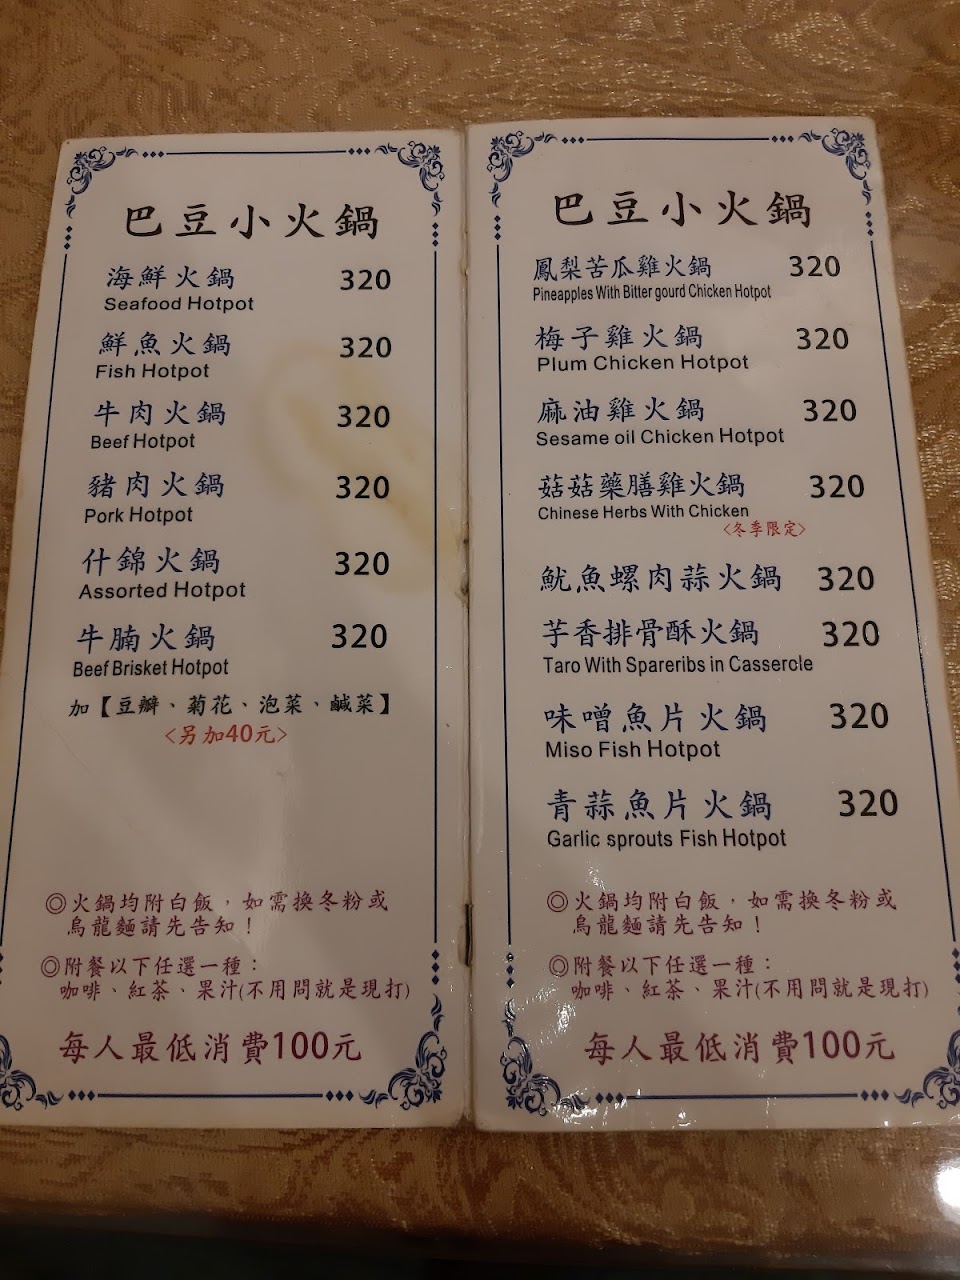 巴豆小火鍋
海鮮火鍋 320
Seafood Hotpot
鮮魚火鍋 320
Fish Hotpot
牛肉火鍋 320
Beef Hotpot
豬肉火鍋 320
Pork Hotpot
什錦火鍋 320
Assorted Hotpot
牛腩火鍋 320
Beef Brisket Hotpot
加【豆瓣、菊花、泡菜、鹹菜】
<另加40元>
◎火鍋均附白飯，如需換冬粉或
烏龍麵請先告知！
◎附餐以下任選一種：
咖啡、紅茶、果汁(不用問就是現打)
每人最低消費100元
巴豆小火鍋
鳳梨苦瓜雞火鍋 320
Pineapples With Bitter gourd Chicken Hotpot
梅子雞火鍋 320
Plum Chicken Hotpot
麻油雞火鍋 320
Sesame oil Chicken Hotpot
菇菇藥膳雞火鍋 320
Chinese Herbs With Chicken
<冬季限定>
魷魚螺肉蒜火鍋 320
芋香排骨酥火鍋 320
Taro With Spareribs in Casserole
味噌魚片火鍋 320
Miso Fish Hotpot
青蒜魚片火鍋 320
Garlic sprouts Fish Hotpot
◎火鍋均附白飯，如需換冬粉或
烏龍麵請先告知！
◎附餐以下任選一種：
咖啡、紅茶、果汁(不用問就是現打)
每人最低消費100元